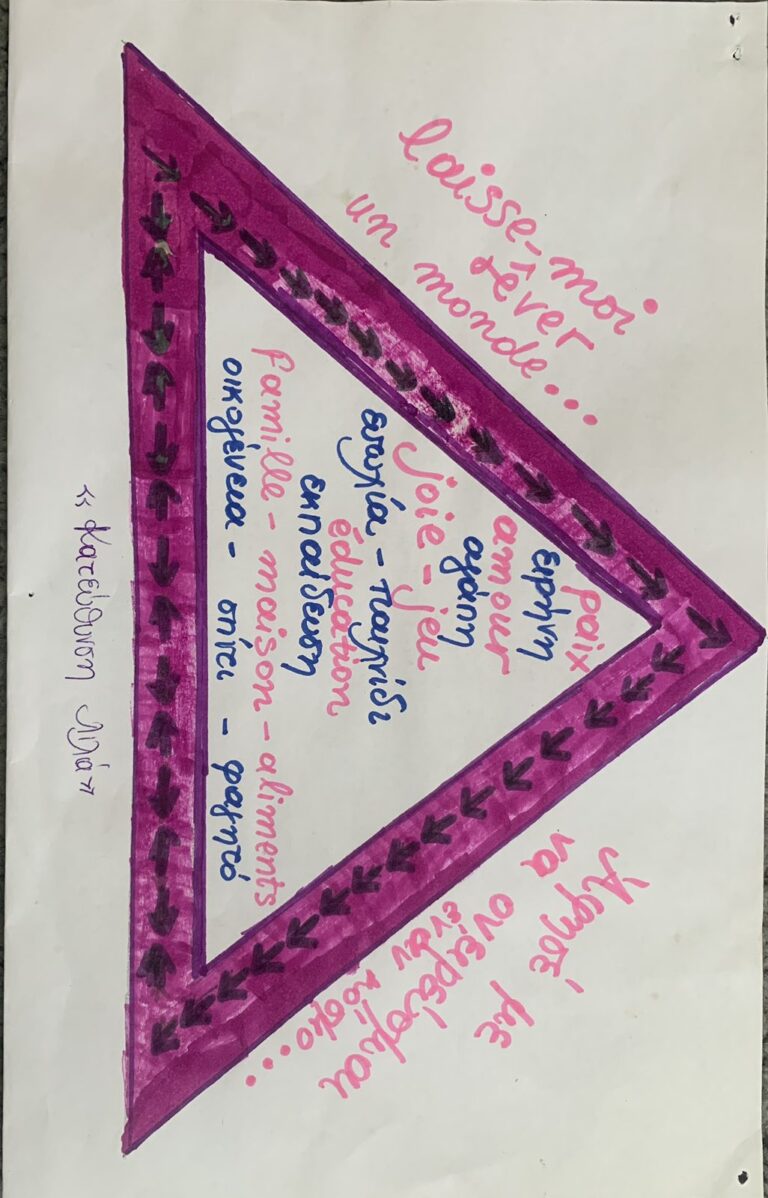 laisse-moi
rêver
un monde...
Αφησέ με
να ονειρεύομαι
έναν κόσμο...
paix
ειρήνη
amour
αγάπη
joie - jeu
ευτυχία - παιχνίδι
éducation
εκπαίδευση
famille - maison - aliments
οικογένεια - σπίτι - φαγητό
«Κατεύθυνση Λιλά»